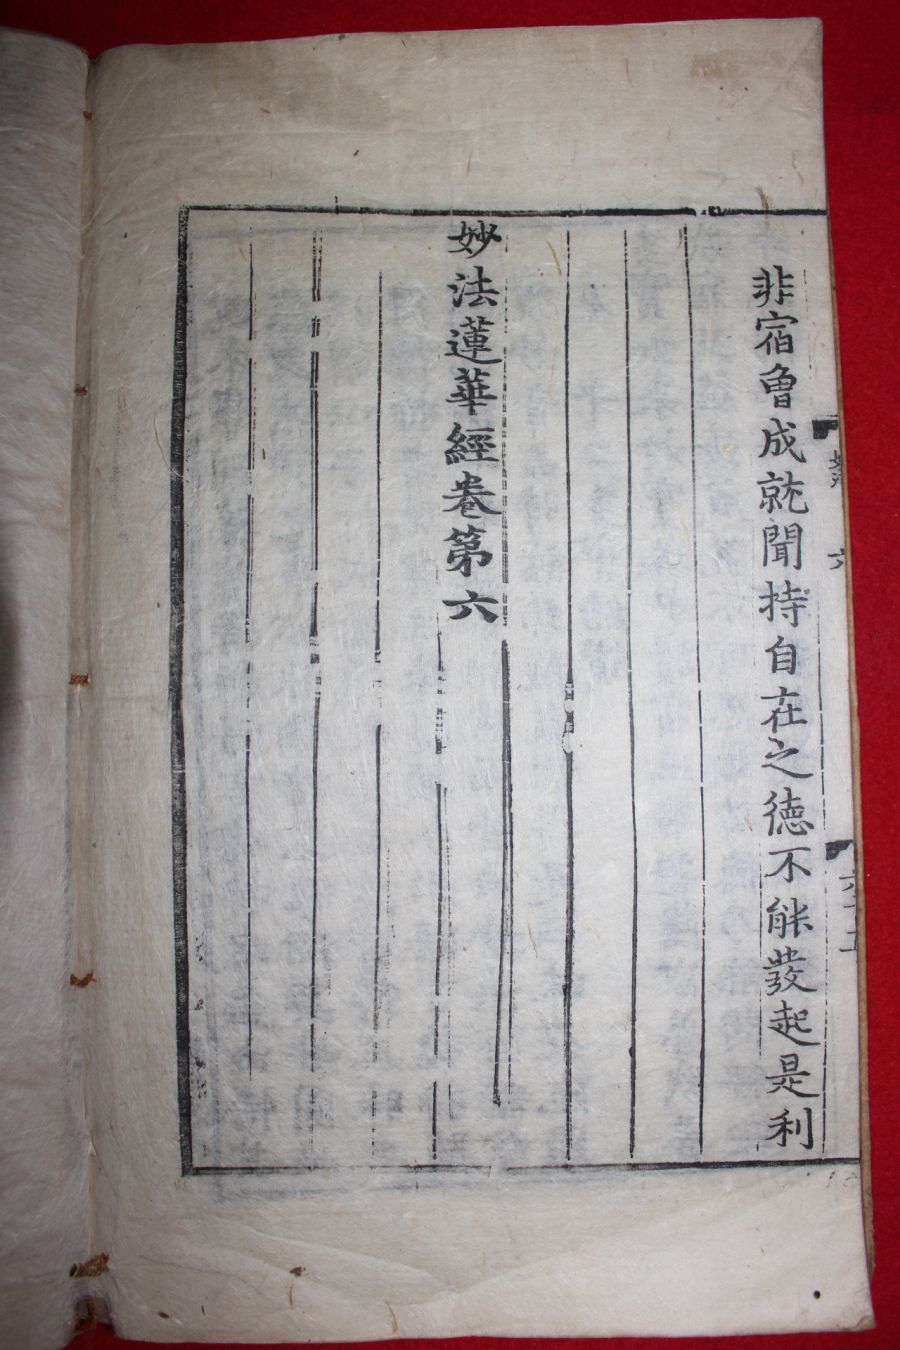 非宿魯成就聞持自在之德不能發起是利
妙法蓮華經卷第六